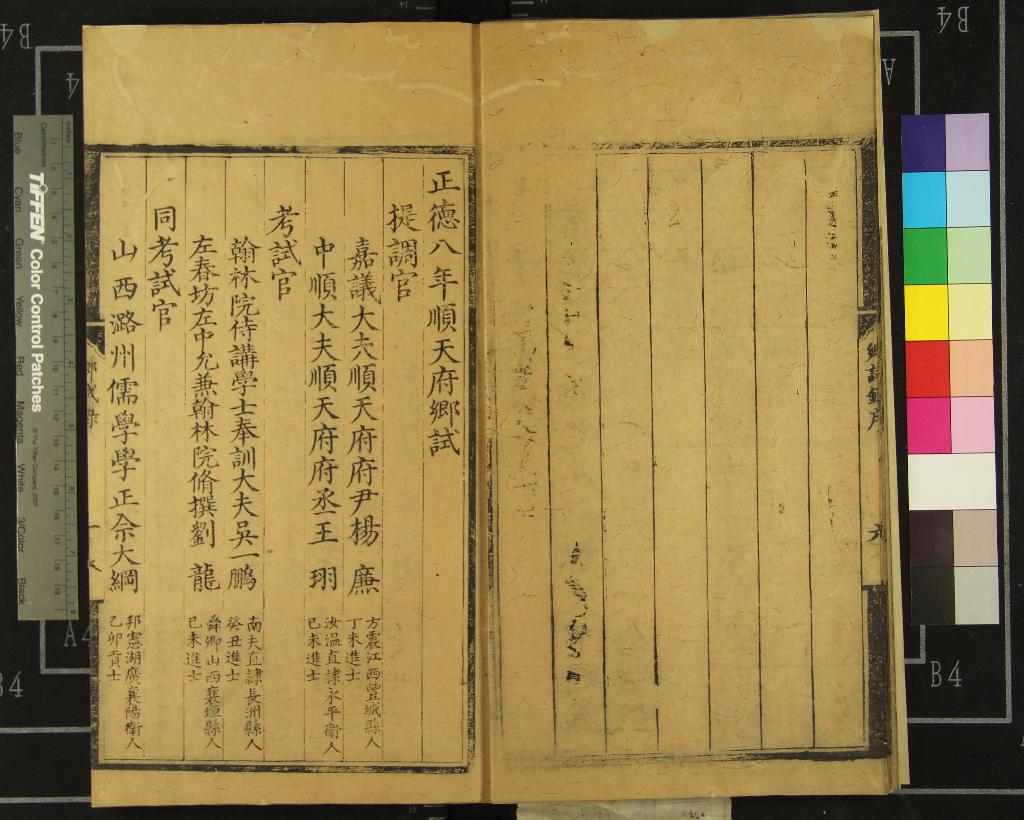 正德八年順天府鄉試
提調官
嘉議大夫順天府府尹楊 廉
方震江西豐城縣人
丁未進士
中順大夫順天府府丞王 珝
汝溫直隸永平衛人
己未進士
考試官
翰林院侍講學士奉訓大夫吳一鵬
南夫直隸長洲縣人
癸丑進士
左春坊左中允兼翰林院脩撰劉 龍
舜卿山西襄垣縣人
己未進士
同考試官
山西潞州儒學學正佘大綱
邦憲湖廣襄陽衛人
乙卯貢士
鄉試錄
鄉試錄序
九
B4
B4
B4
A4
TIFFEN Color Control Patches
© The Tiffen Company, 2007
Centimetres
Inches
Blue
Cyan
Green
Yellow
Red
Magenta
White
3/Color
Black